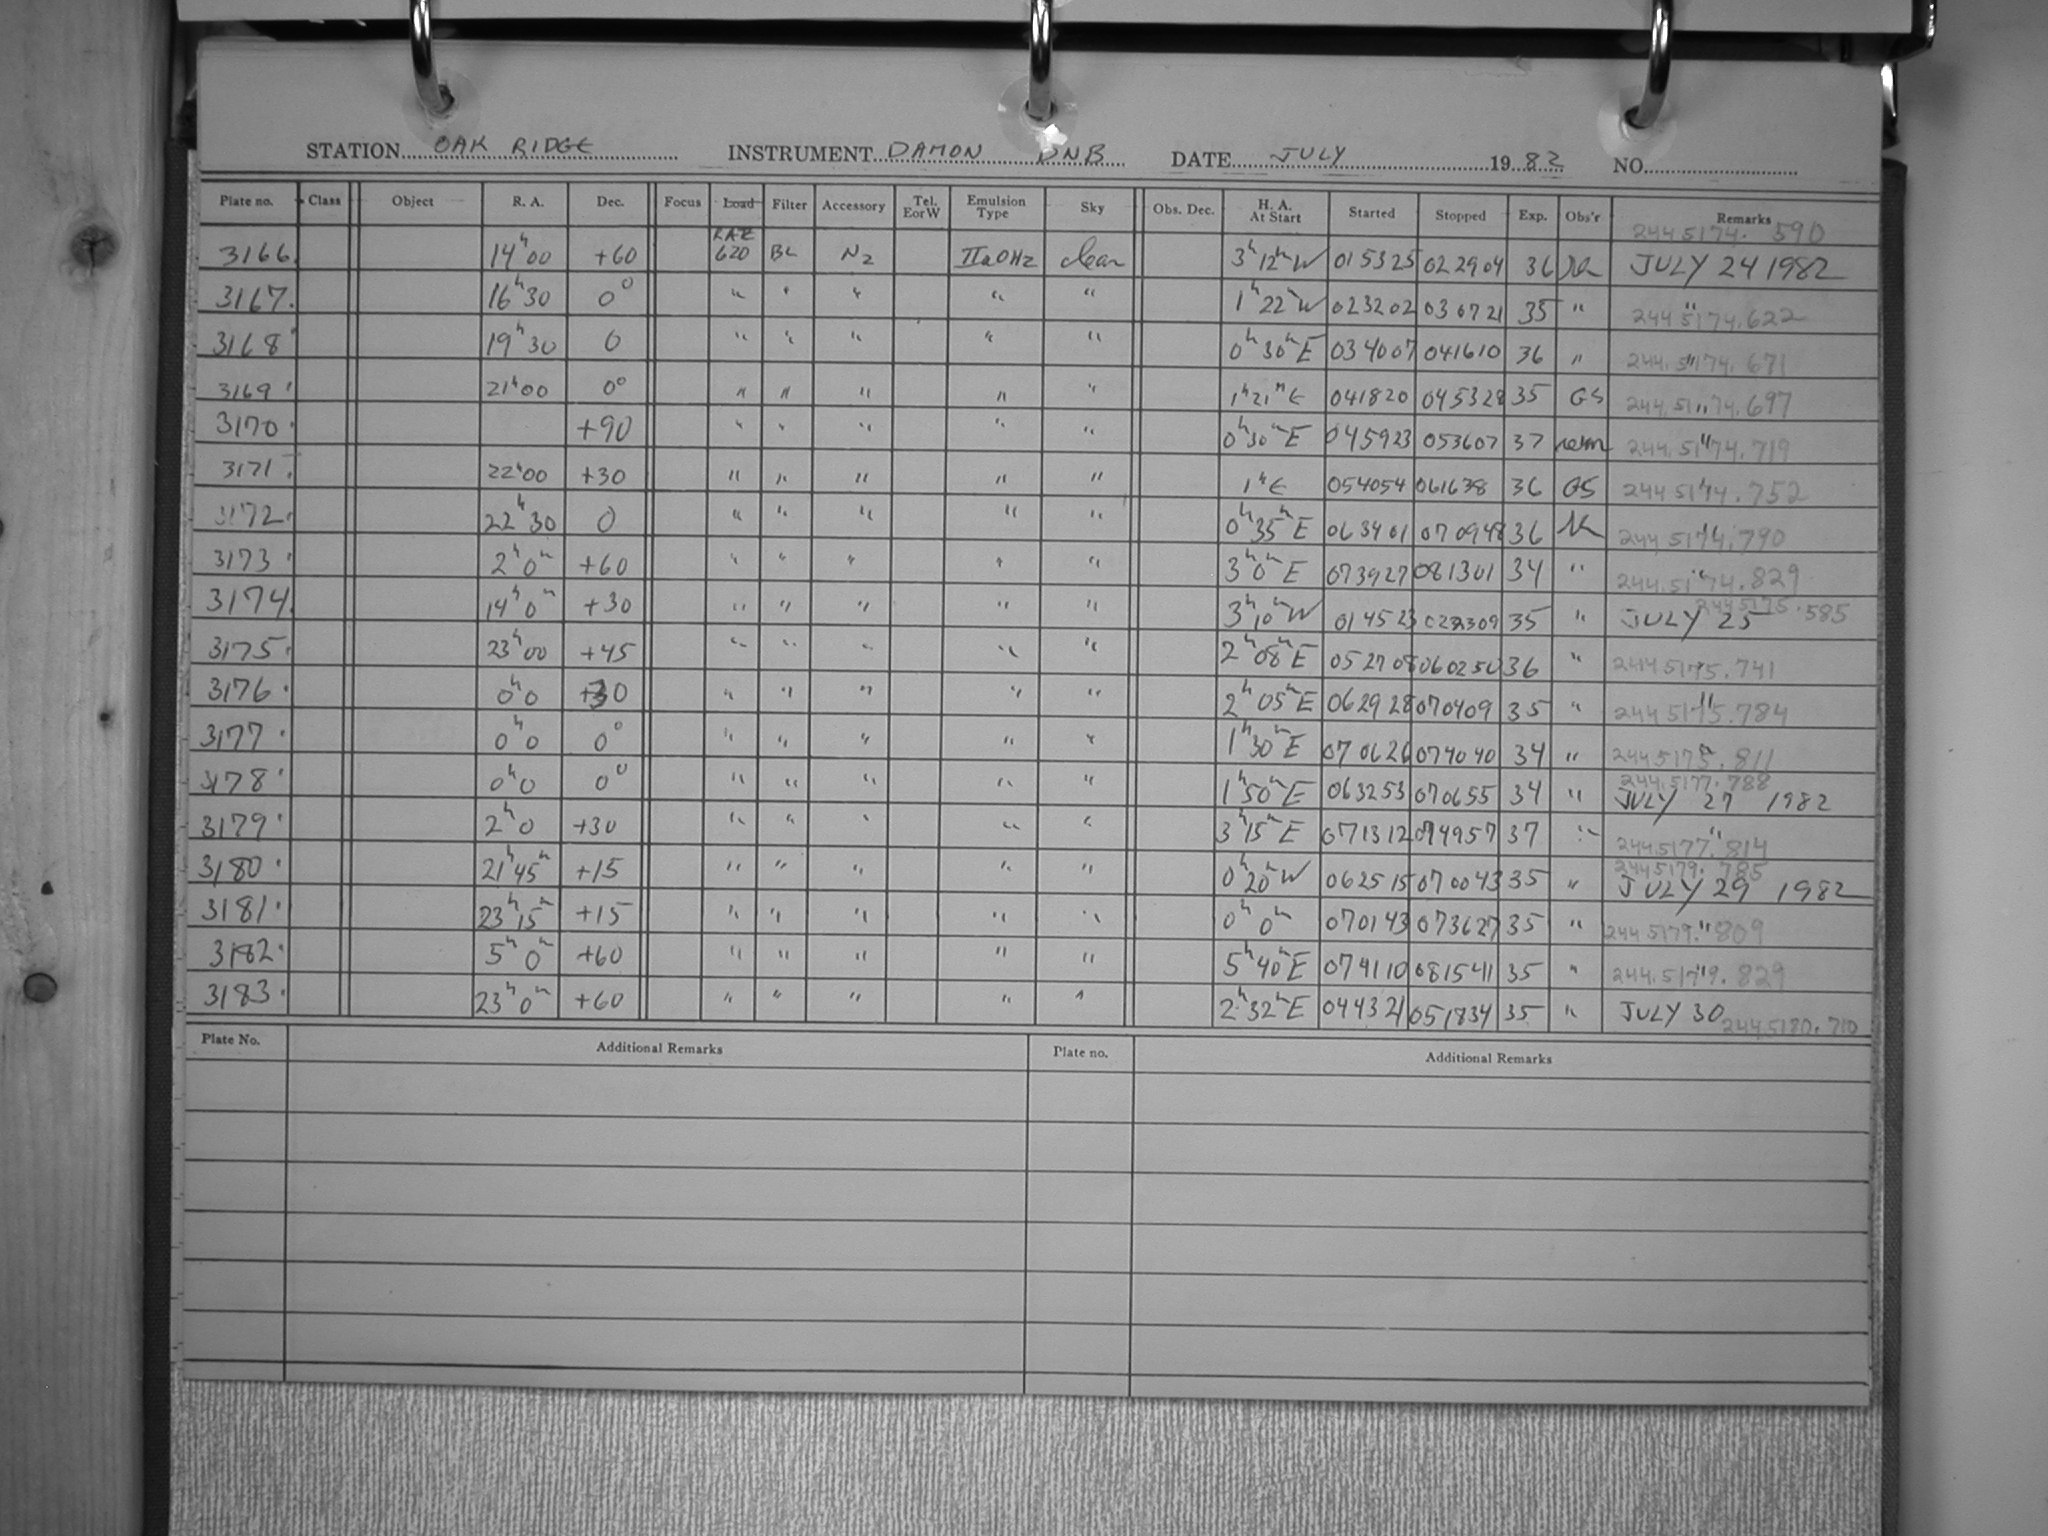 STATION OAK RIDGE INSTRUMENT DAMON DNB DATE JULY 1982 NO.
Plate no. Class Object R. A. Dec. Focus Load Filter Accessory Tel. EorW Emulsion Type Sky Obs. Dec. H. A. At Start Started Stopped Exp. Obs'r Remarks
2445174.590
3166 14h00 +60 620 BL N2 IIaOHz clear 3h12mW 015325 022904 36 JULY 24 1982
3167. 16h30 0° " " " " " 1h22mW 023202 030721 35 " " 2445174.622
3168 19h30 0 " " " " " 0h30mE 034007 041610 36 " " 2445174.671
3169 21h00 0° " " " " " 1h21mE 041820 045328 35 GS " 2445174.697
3170 +90 " " " " " 0h30mE 045923 053607 37 " 2445174.719
3171 22h00 +30 " " " " " 1hE 054054 061638 36 GS " 2445174.752
3172 22h30 0 " " " " " 0h35mE 063401 070948 36 " 2445174.790
3173 2h0m +60 " " " " " 3h0mE 073927 081301 34 " " 2445174.829
3174 14h0m +30 " " " " " 3h10mW 014523 022309 35 " JULY 25 2445175.585
3175 23h00 +45 " " " " " 2h08mE 052708 060250 36 " " 2445175.741
3176 0h0 +30 " " " " " 2h05mE 062928 070409 35 " " 2445175.784
3177 0h0 0° " " " " " 1h30mE 070626 074040 34 " " 2445175.811
3178 0h0 0° " " " " " 1h50mE 063253 070655 34 " 2445177.788 JULY 27 1982
3179 2h0 +30 " " " " " 3h15mE 071312 074957 37 " " 2445177.814
3180 21h45m +15 " " " " " 0h20mW 062515 070043 35 " 2445179.785 JULY 29 1982
3181 23h15m +15 " " " " " 0h0m 070143 073627 35 " " 2445179.809
3182 5h0m +60 " " " " " 5h40mE 074110 081541 35 " " 2445179.829
3183 23h0m +60 " " " " " 2h32mE 044321 051834 35 " JULY 30 2445180.710
Plate No. Additional Remarks Plate no. Additional Remarks